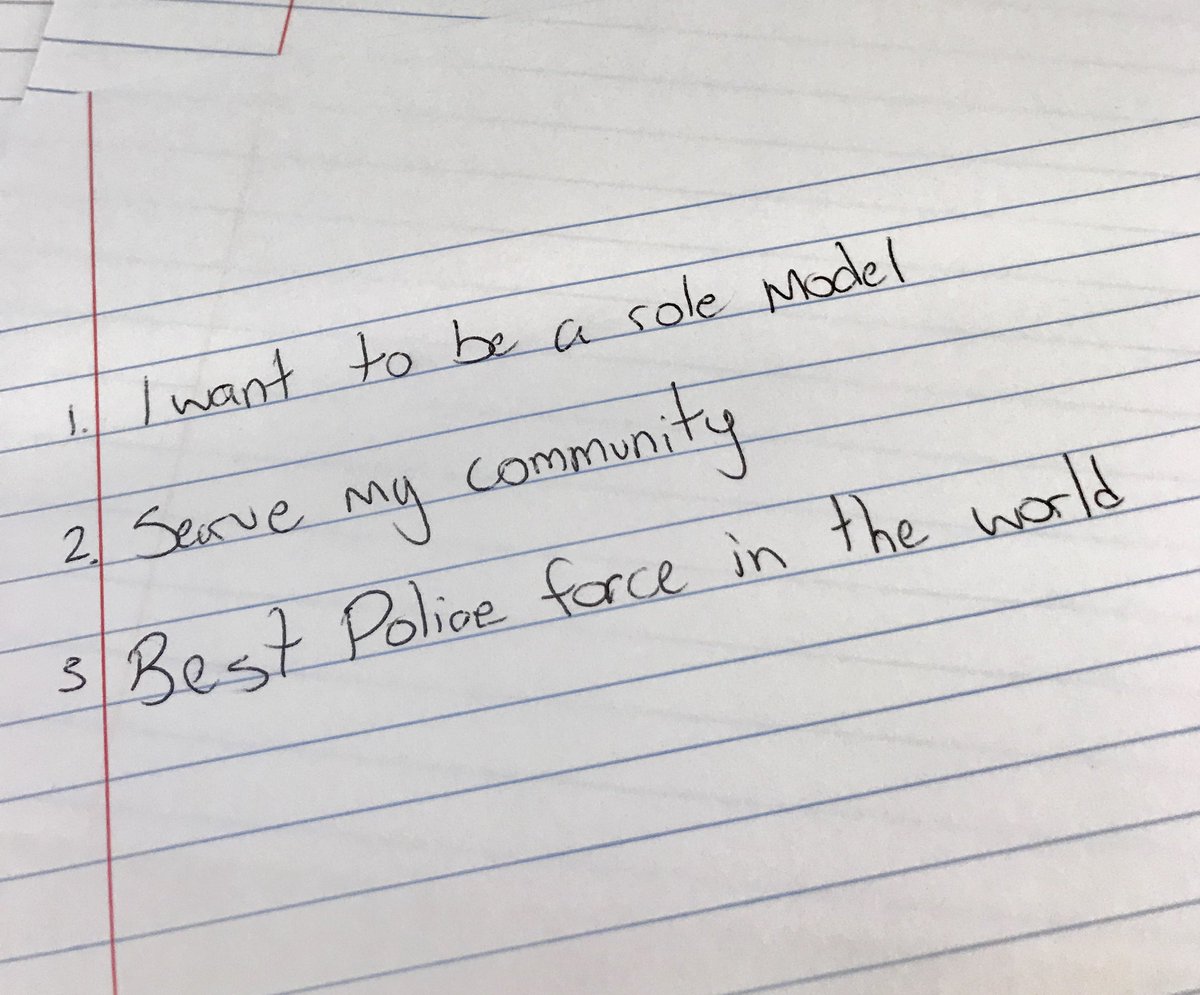 1. I want to be a role Model
2. Serve my community
3 Best Police force in the world